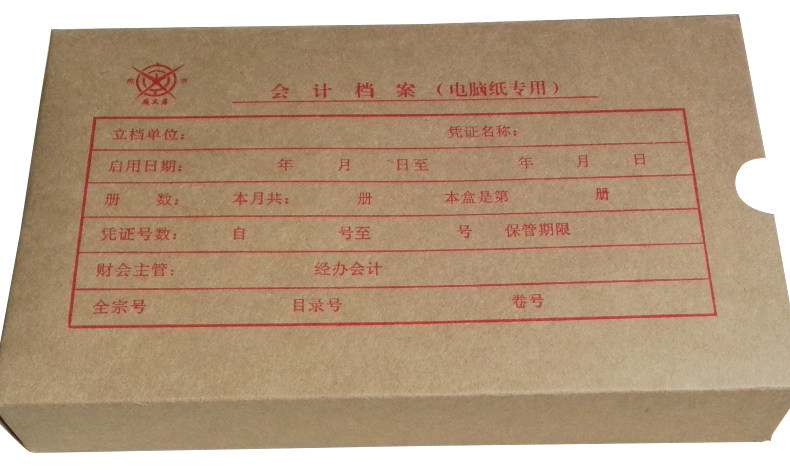 会计档案（电脑纸专用）
立档单位： 凭证名称：
启用日期： 年 月 日至 年 月 日
册 数： 本月共： 册 本盒是第 册
凭证号数： 自 号至 号 保管期限
财会主管： 经办会计
全宗号 目录号 卷号